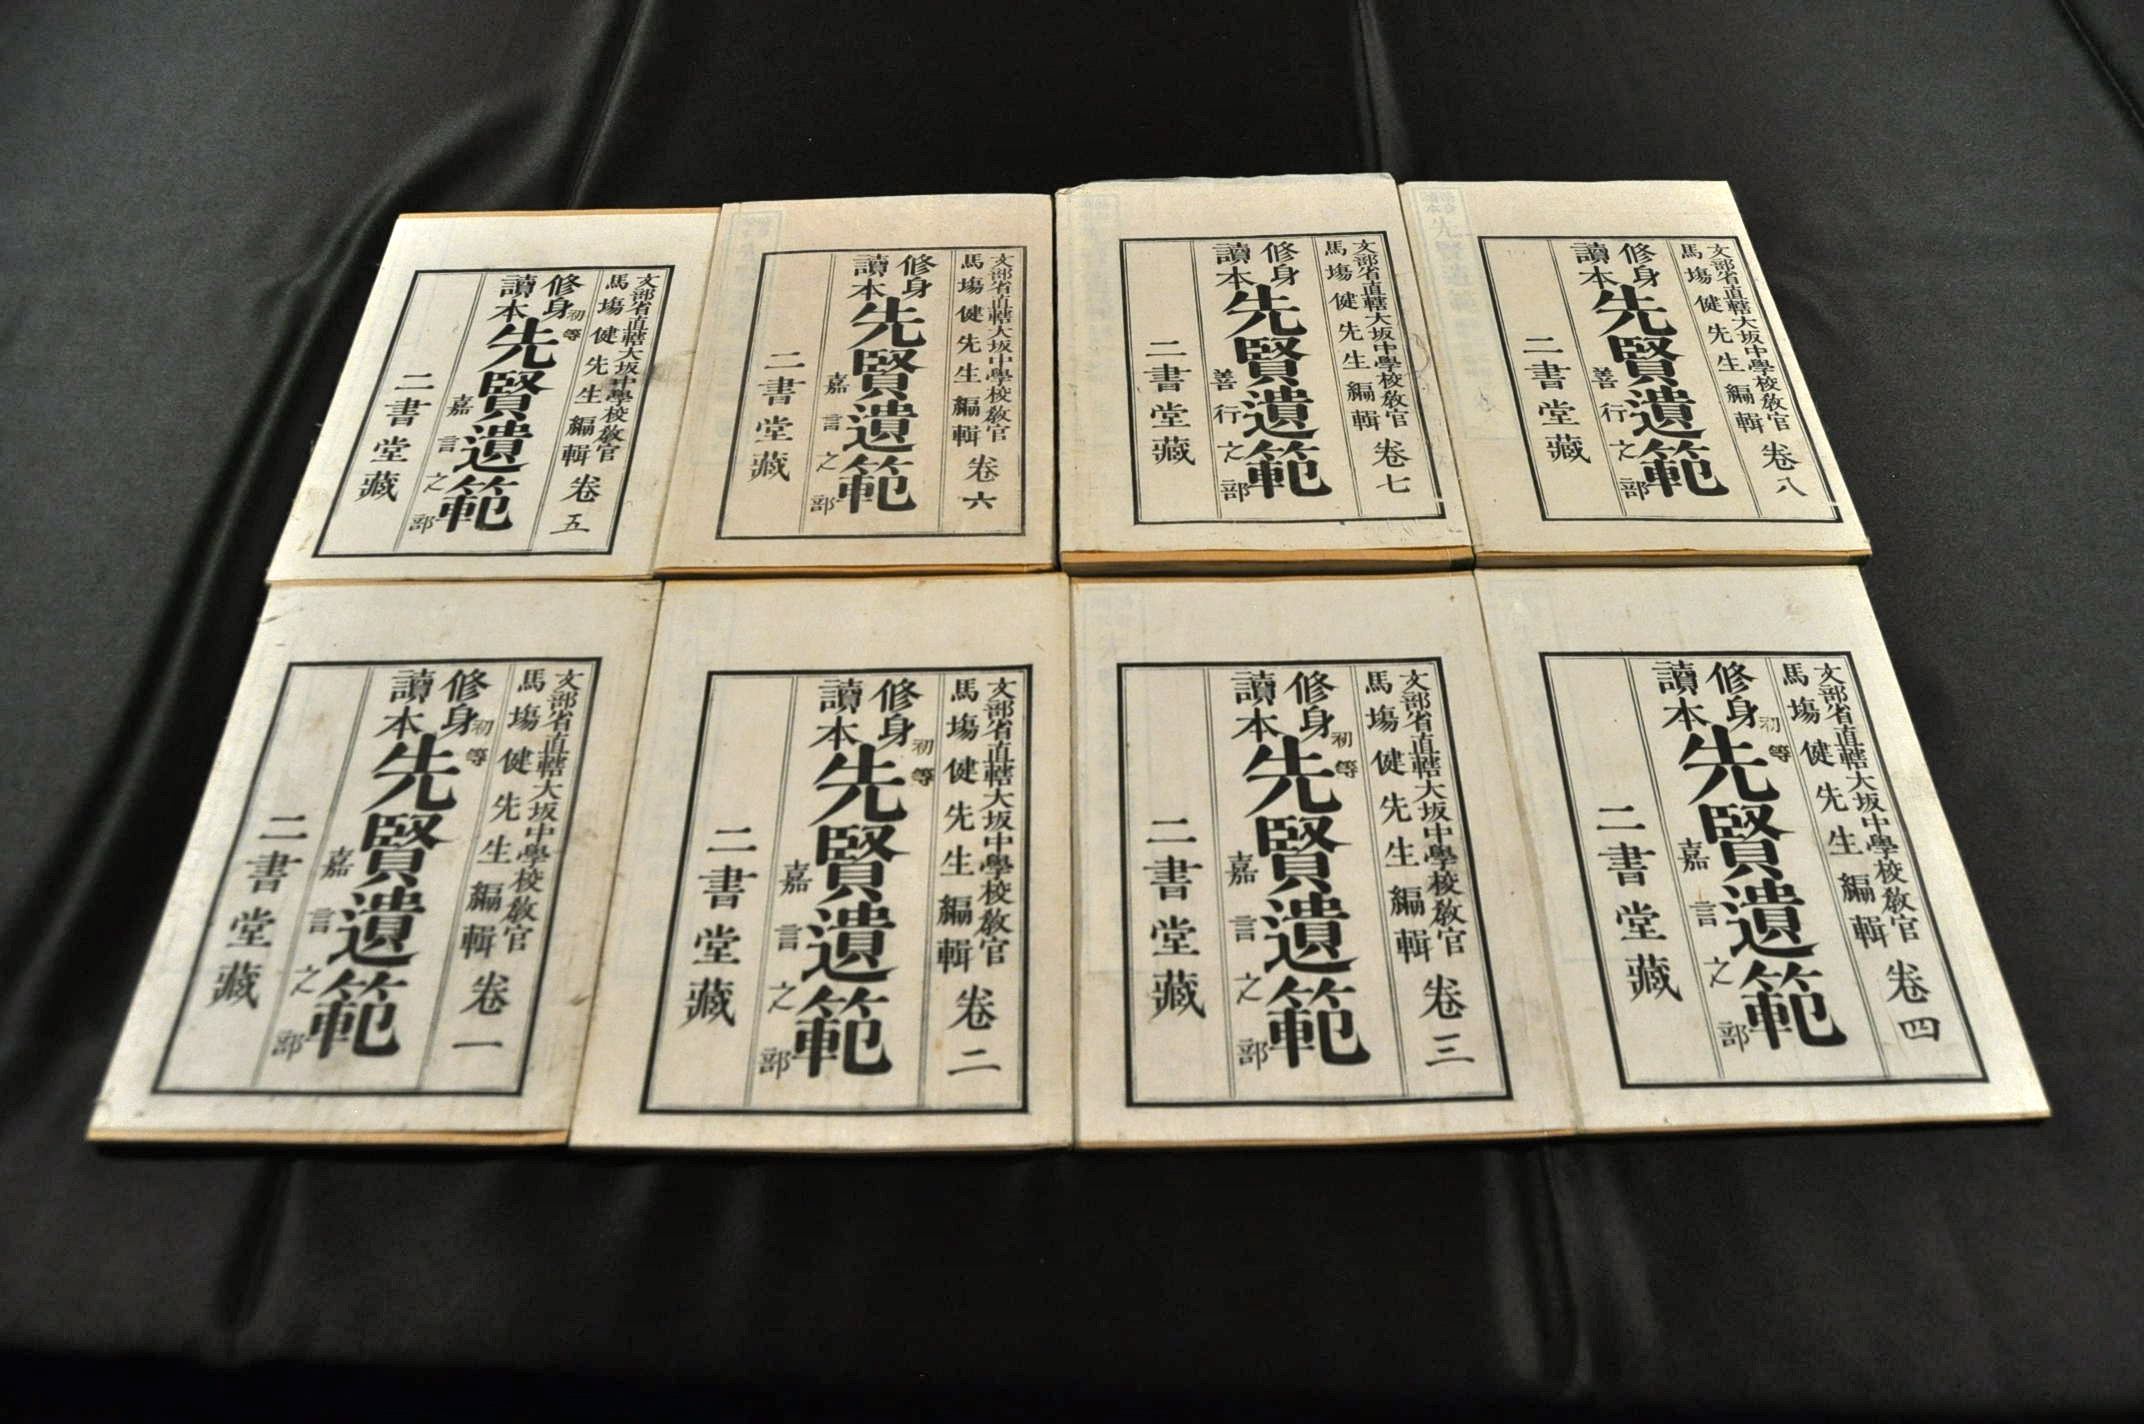 文部省直轄大坂中學校敎官
馬塲健先生編輯 卷五
修身讀本 初等
先賢遺範
嘉言之部
二書堂藏
文部省直轄大坂中學校敎官
馬塲健先生編輯 卷六
修身讀本
先賢遺範
嘉言之部
二書堂藏
文部省直轄大坂中學校敎官
馬塲健先生編輯 卷七
修身讀本
先賢遺範
善行之部
二書堂藏
文部省直轄大坂中學校敎官
馬塲健先生編輯 卷八
修身讀本
先賢遺範
善行之部
二書堂藏
文部省直轄大坂中學校敎官
馬塲健先生編輯 卷一
修身讀本 初等
先賢遺範
嘉言之部
二書堂藏
文部省直轄大坂中學校敎官
馬塲健先生編輯 卷二
修身讀本 初等
先賢遺範
嘉言之部
二書堂藏
文部省直轄大坂中學校敎官
馬塲健先生編輯 卷三
修身讀本 初等
先賢遺範
嘉言之部
二書堂藏
文部省直轄大坂中學校敎官
馬塲健先生編輯 卷四
修身讀本 初等
先賢遺範
嘉言之部
二書堂藏